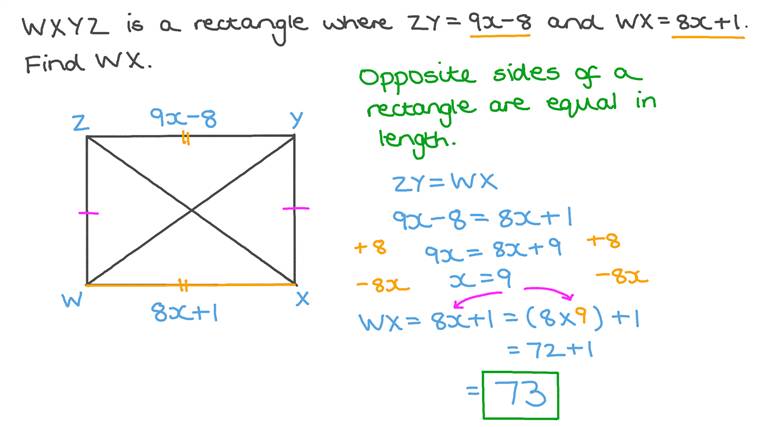 WXYZ is a rectangle where ZY = 9x-8 and WX = 8x+1.
Find WX.
Opposite sides of a
rectangle are equal in
length.
9x-8
Z
Y
W
X
8x+1
ZY = WX
9x-8 = 8x+1
+8 9x = 8x+9 +8
-8x x = 9 -8x
WX = 8x+1 = (8x9) +1
= 72+1
= 73